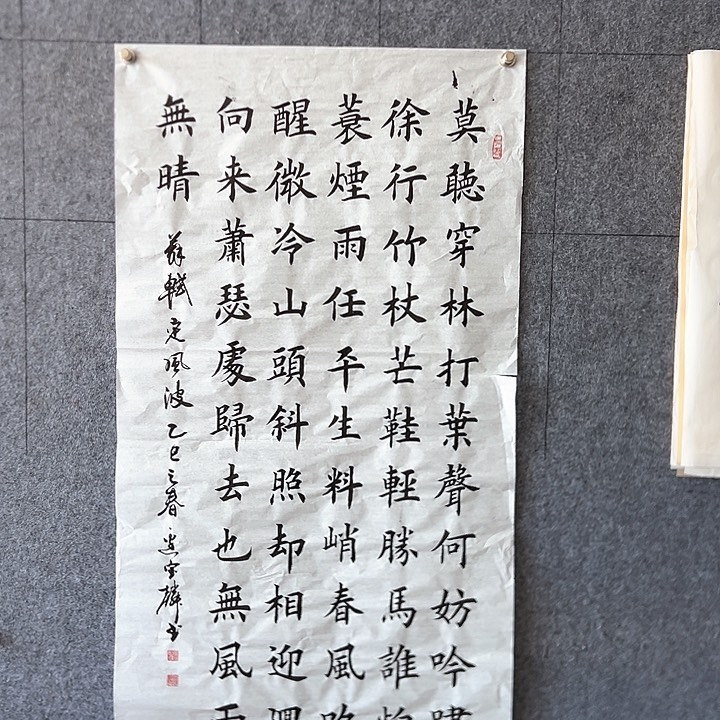 莫聽穿林打葉聲何妨吟嘯
徐行竹杖芒鞋輕勝馬誰怕
蓑煙雨任平生料峭春風吹
醒微冷山頭斜照却相迎
向来蕭瑟處歸去也無風雨
無晴
蘇軾定風波乙巳之春宝麟书